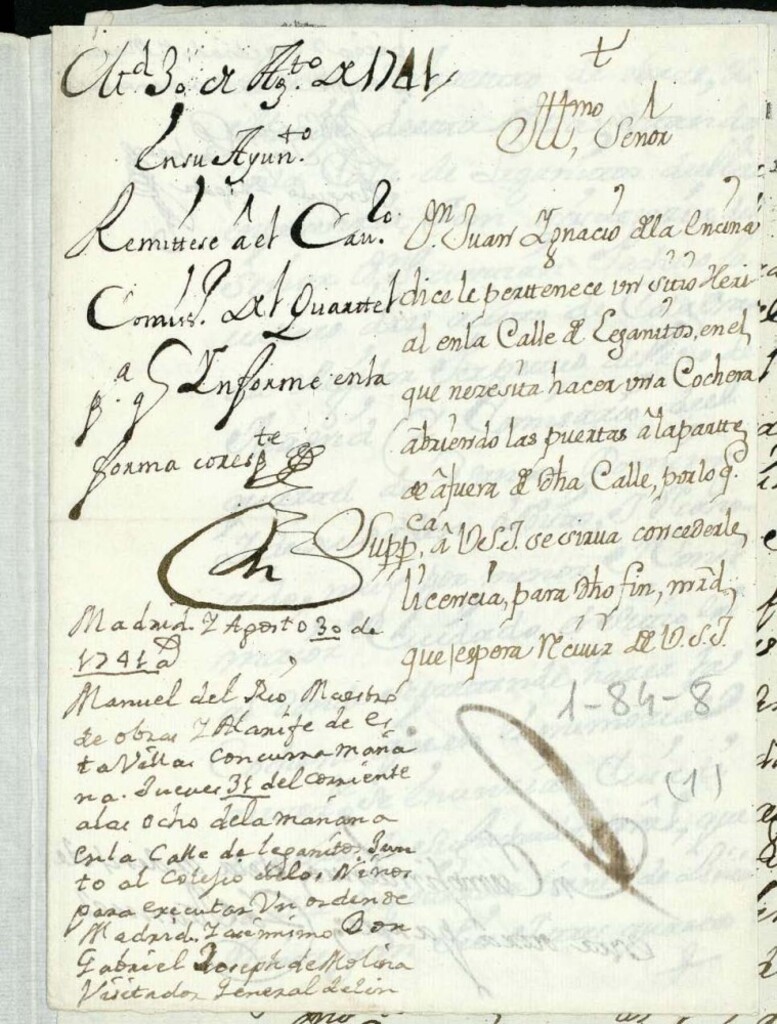 M.d 30 de Ag.to de 1741
En su Ayun.to
Remittese â el Cav.ro
Comiss.o del Quarttel
p.a q Informe en la
forma corresp.te
Madrid. y Agosto 30 de
1741 a
Manuel del Rio, Maestro
de obras y Alarife de es
ta Villa; Concurra maña
na. Jueves 31 del corriente
alas ocho dela mañana
en la Calle de leganitos Jun
to al Colesio delos Niños
para executar Vn orden de
Madrid. y asimismo Don
Gabriel Joseph de Molina
Visitador General de
Ill.mo Señor
D.n Juan Ygnacio dela Encina
dice le perttenece vn sitio Heri
al en la Calle de Leganitos, en el
que nezesita hacer vna Cochera
abriendo las puertas â la partte
de âfuera de dha Calle, por lo q.
Supp.ca â V.S.I. se sirva concederle
licencia, para dho fin, mrd,
que espera Recivir de V.S.I.
1-84-8
(1)